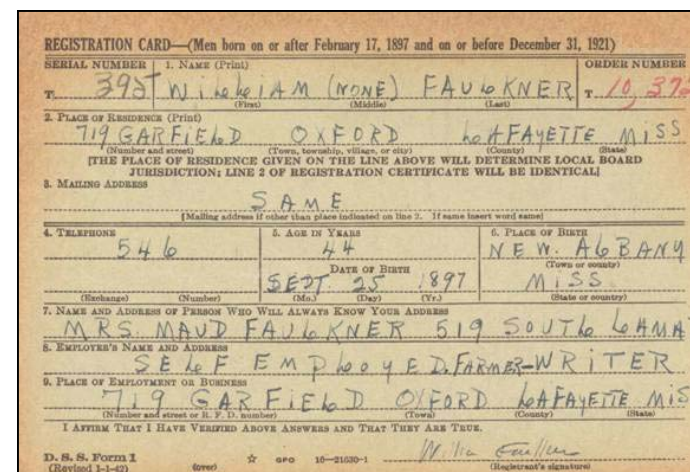 REGISTRATION CARD—(Men born on or after February 17, 1897 and on or before December 31, 1921)
SERIAL NUMBER 1. NAME (Print) ORDER NUMBER
T. 395 WiLLiAM (NONE) FAULKNER T. 10,372
(First) (Middle) (Last)
2. PLACE OF RESIDENCE (Print)
719 GARFiELD OXFORD LAFAYETTE MISS
(Number and street) (Town, township, village, or city) (County) (State)
[THE PLACE OF RESIDENCE GIVEN ON THE LINE ABOVE WILL DETERMINE LOCAL BOARD
JURISDICTION; LINE 2 OF REGISTRATION CERTIFICATE WILL BE IDENTICAL]
3. MAILING ADDRESS
SAME
[Mailing address if other than place indicated on line 2. If same insert word same]
4. TELEPHONE 5. AGE IN YEARS 6. PLACE OF BIRTH
546 44 NEW. ALBANY
DATE OF BIRTH (Town or county)
SEPT 25 1897 MiSS
(Exchange) (Number) (Mo.) (Day) (Yr.) (State or country)
7. NAME AND ADDRESS OF PERSON WHO WILL ALWAYS KNOW YOUR ADDRESS
MRS. MAUD FAULKNER 519 SOUTH LAMA
8. EMPLOYER'S NAME AND ADDRESS
SELF EMPLOYED. FARMER-WRiTER
9. PLACE OF EMPLOYMENT OR BUSINESS
719 GARFiELD OXFORD LAFAYETTE MiS
(Number and street or R. F. D. number) (Town) (County) (State)
I AFFIRM THAT I HAVE VERIFIED ABOVE ANSWERS AND THAT THEY ARE TRUE.
D. S. S. Form 1 ☆ GPO 16—21630-1 William Faulkner
(Revised 1-1-42) (over) (Registrant's signature)